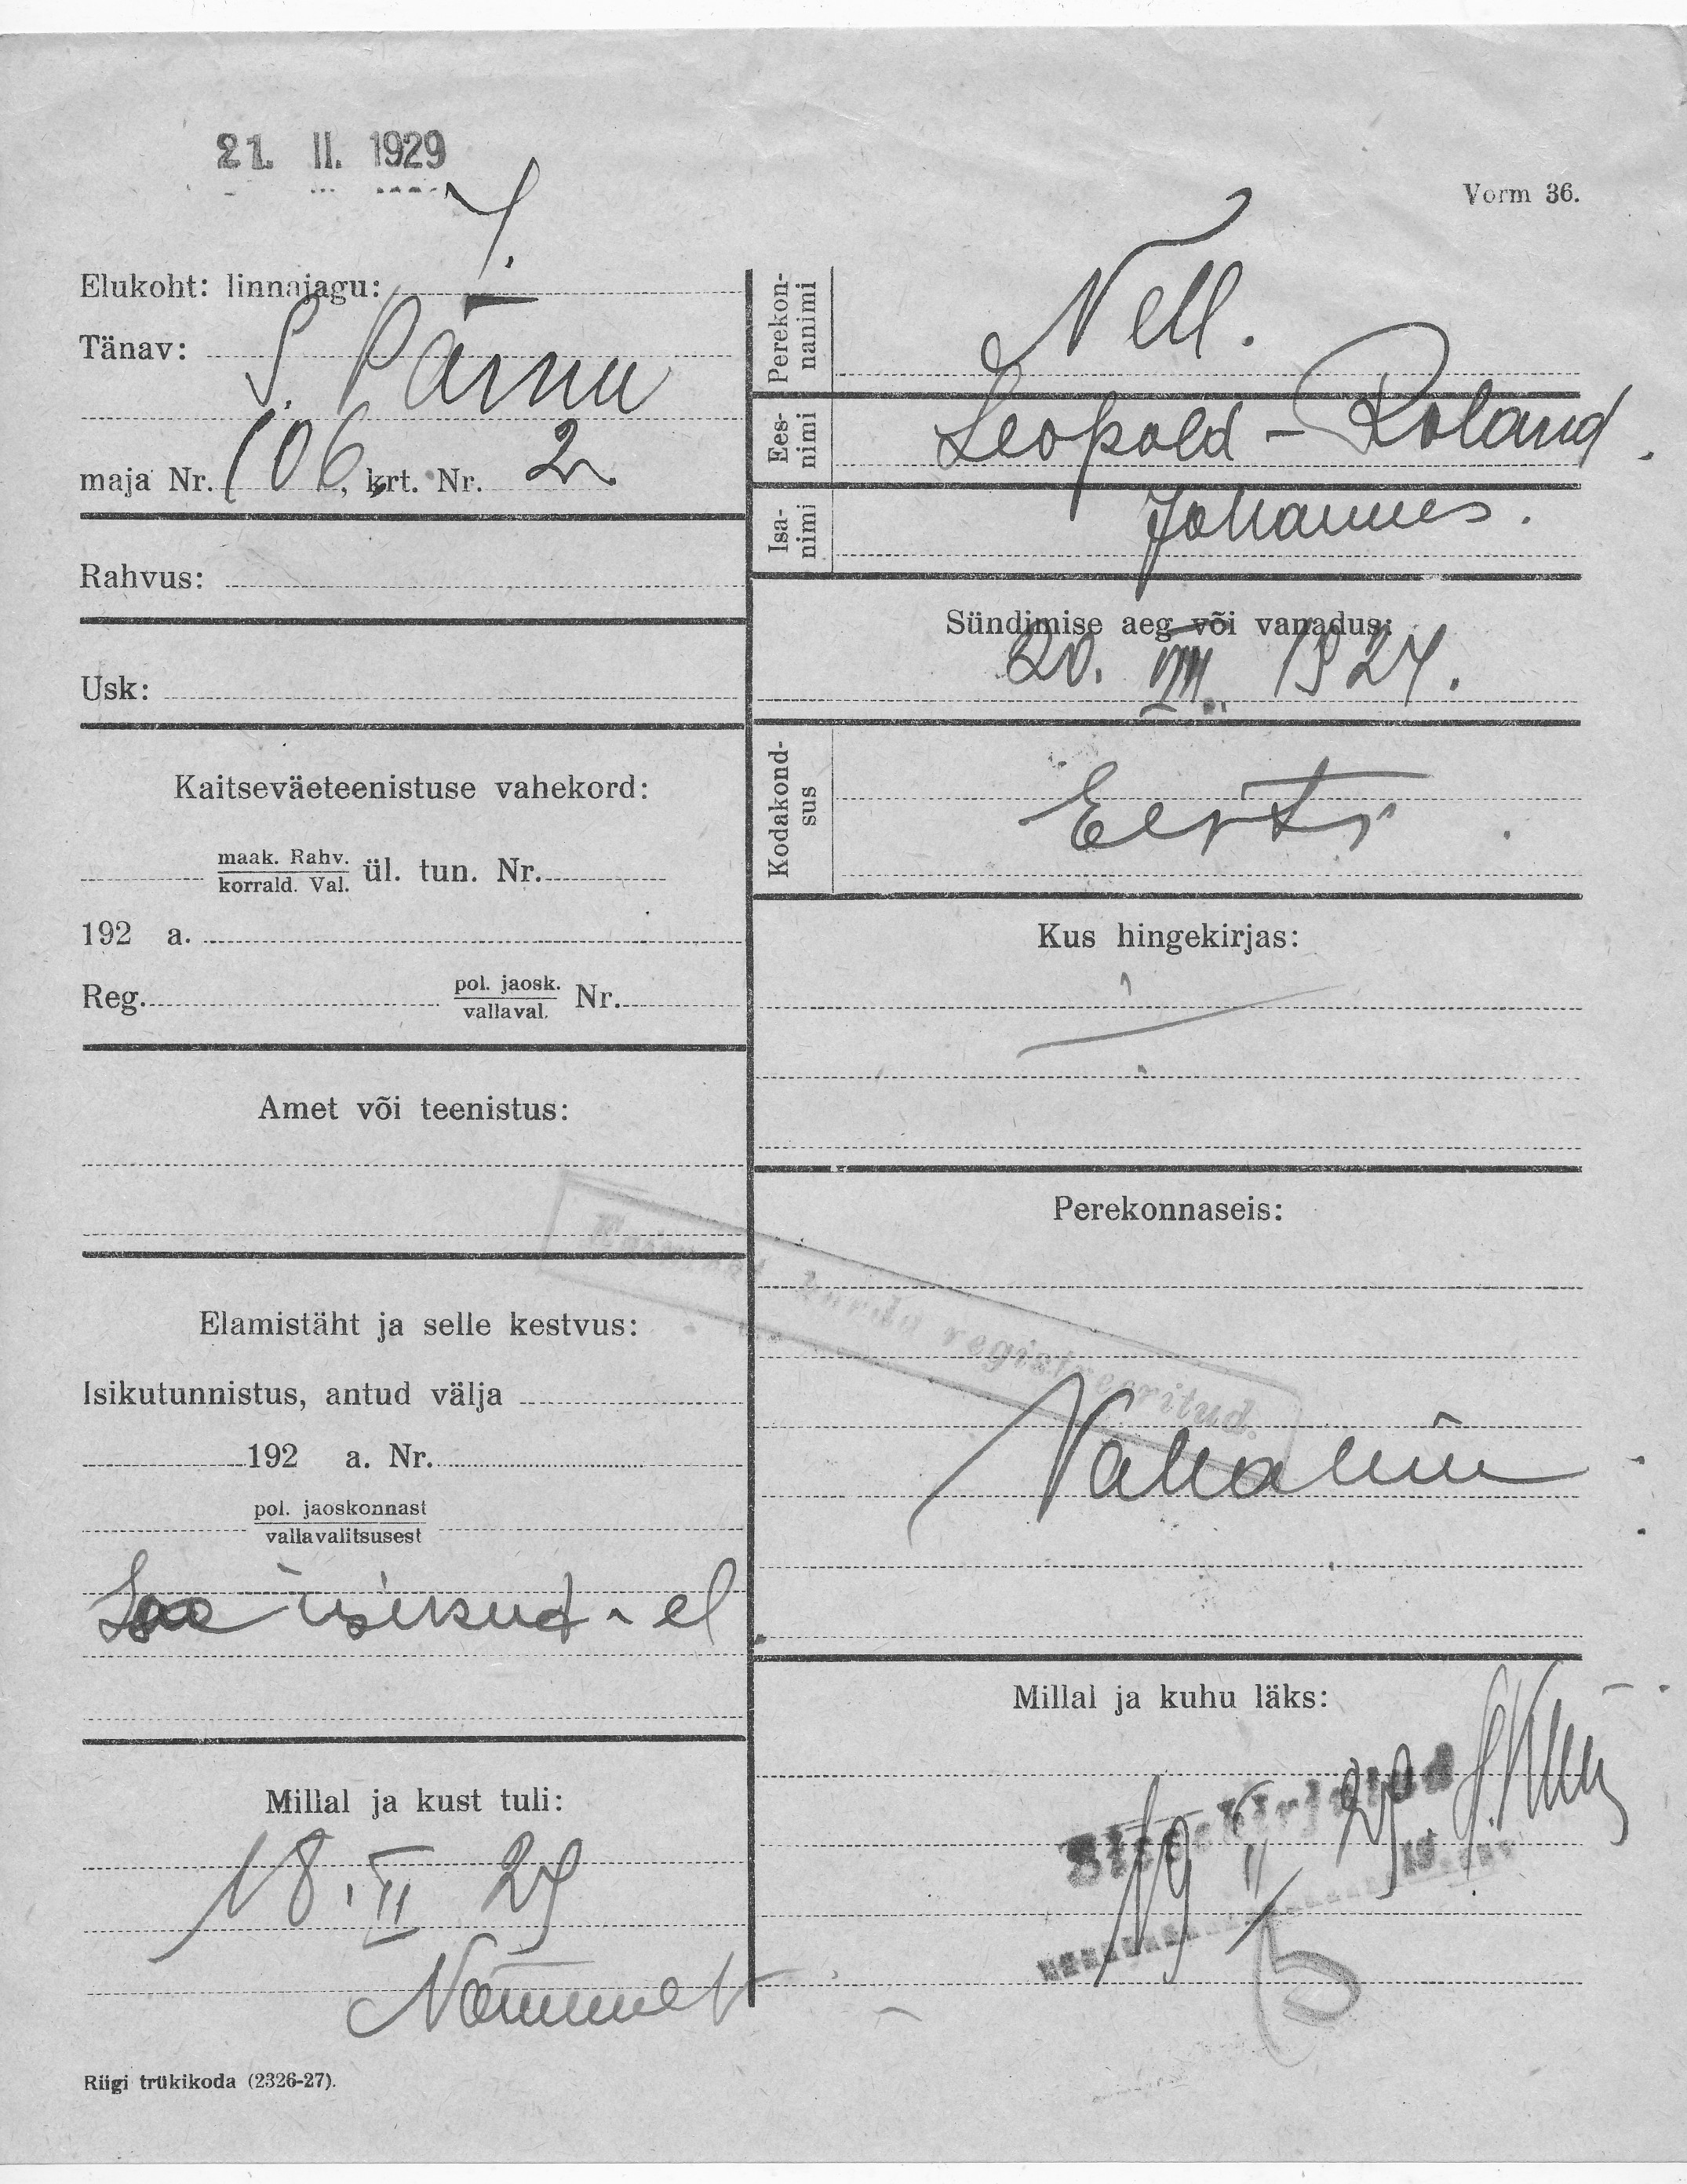 21. II. 1929
Vorm 36.
Elukoht: linnajagu:
Tänav: S. Pärnu
maja Nr. 106, krt. Nr. 2
Rahvus:
Usk:
Kaitseväeteenistuse vahekord:
maak. Rahv.
korrald. Val. ül. tun. Nr.
192 a.
Reg. pol. jaosk. Nr.
vallaval.
Amet või teenistus:
Elamistäht ja selle kestvus:
Isikutunnistus, antud välja
192 a. Nr.
pol. jaoskonnast
vallavalitsusest
Millal ja kust tuli:
18. II 29
Nõmmelt
Riigi trükikoda (2326-27).
Perekon-
nanimi
Nell.
Ees-
nimi
Leopold - Roland.
Isa-
nimi
Johannes.
Sündimise aeg või vanadus:
20. VIII. 1927.
Kodakond-
sus
Eesti
Kus hingekirjas:
Perekonnaseis:
registreeritud.
Vallaline
Millal ja kuhu läks:
Sissekirjutud
19 II 29